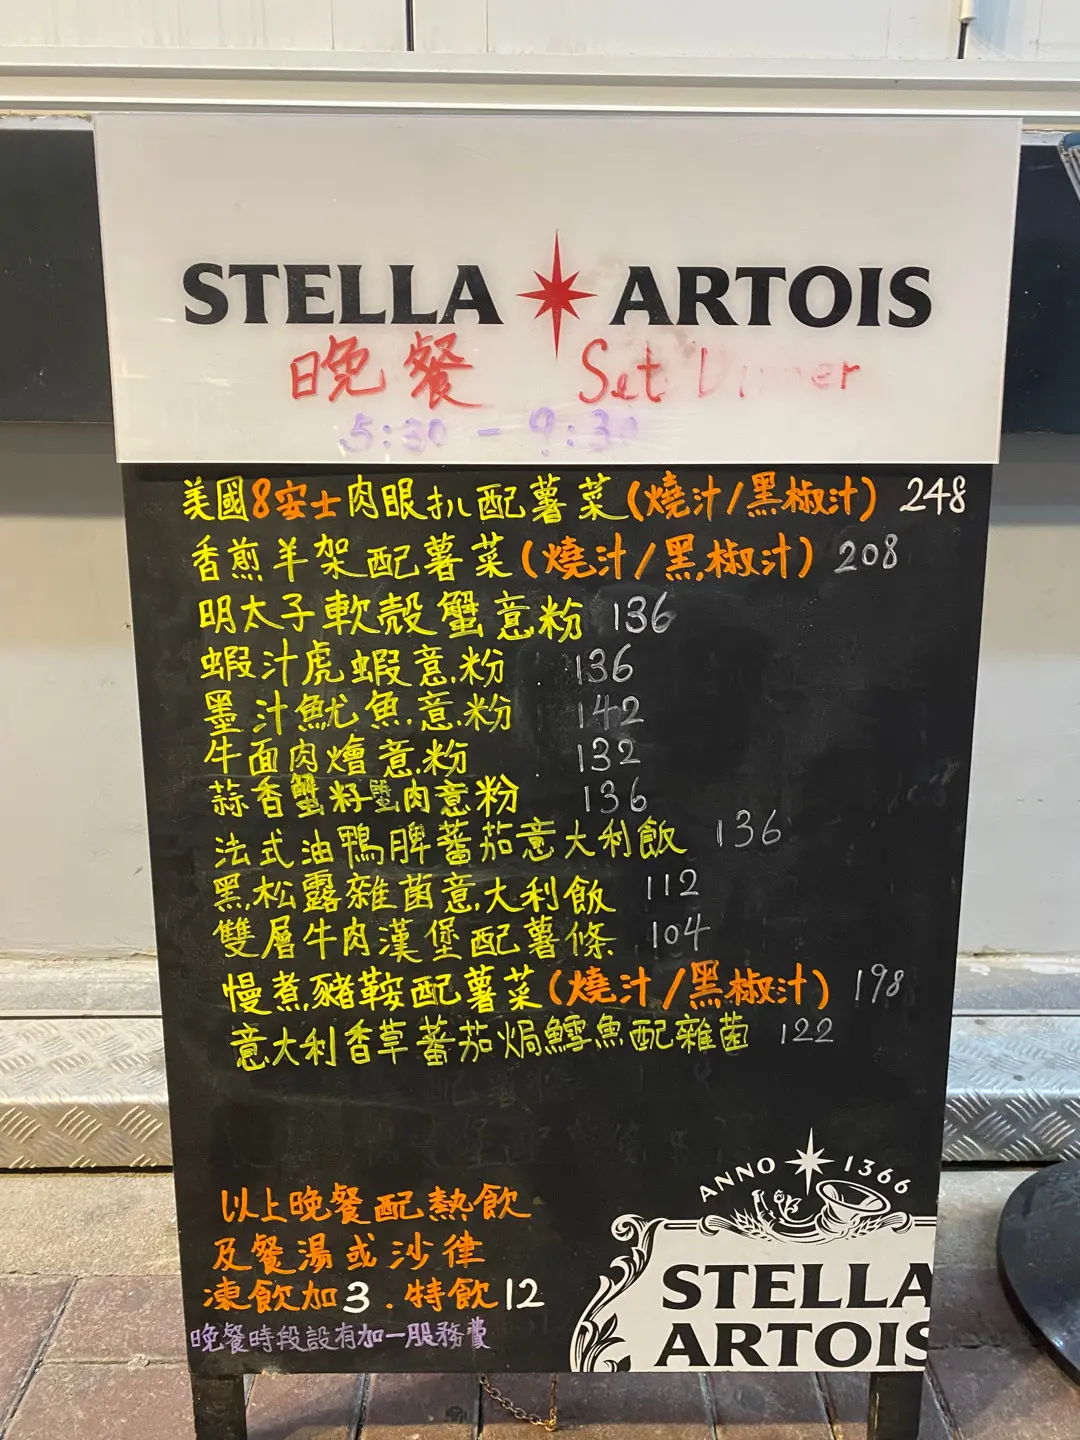 STELLA ARTOIS
晚餐 Set Dinner
5:30 - 9:30
美國8安士肉眼扒配薯菜(燒汁/黑椒汁) 248
香煎羊架配薯菜(燒汁/黑椒汁) 208
明太子軟殼蟹意粉 136
蝦汁虎蝦意粉 136
墨汁魷魚意粉 142
牛面肉燴意粉 132
蒜香蟹籽蟹肉意粉 136
法式油鴨脾蕃茄意大利飯 136
黑松露雜菌意大利飯 112
雙層牛肉漢堡配薯條 104
慢煮豬鞍配薯菜(燒汁/黑椒汁) 198
意大利香草蕃茄焗鱈魚配雜菌 122
以上晚餐配熱飲
及餐湯或沙律
凍飲加3.特飲12
晚餐時段設有加一服務費
ANNO 1366
STELLA
ARTOIS